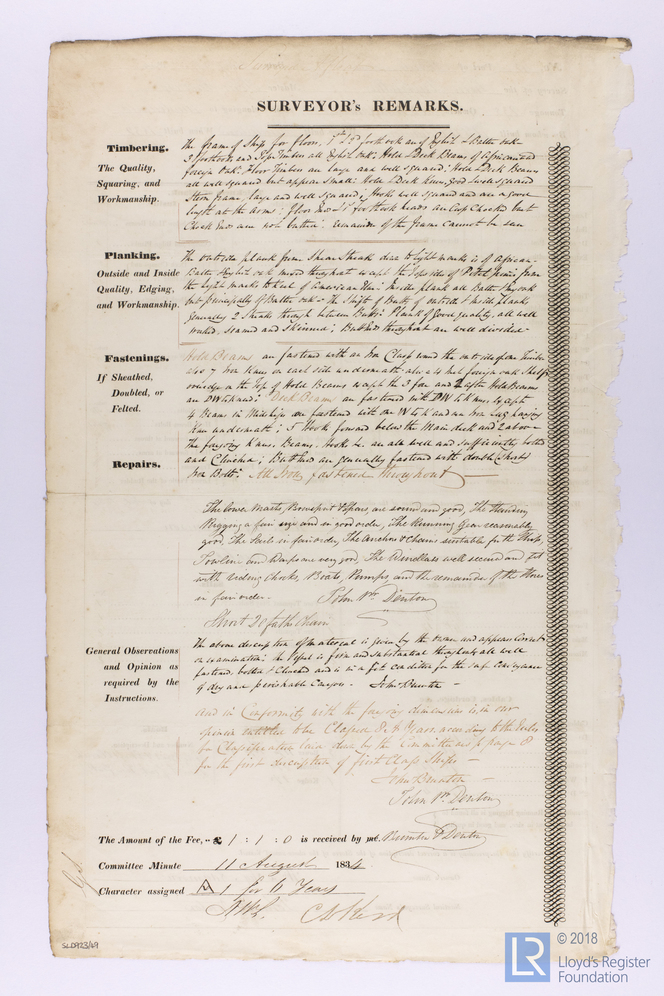 SURVEYOR's REMARKS.
Timbering.
The Quality,
Squaring, and
Workmanship.
The frame of Ship for Floors, 1st 2d foothook are of English & Baltic oak
3 foothooks and Top Timbers all English oak; Hold & Deck Beams of African and
foreign oak: Floor Timbers are large and well squared; Hold & Deck Beams
all well squared but appear small: Hold & Deck Knees good & well squared
Stern frame, large and well squared; Hooks well squared and are a good
length at the arms: Floor & 1st foothook heads are Cup Chocked but
Chock Ends are not butted: remainder of the frame cannot be seen
Planking.
Outside and Inside
Quality, Edging,
and Workmanship.
The outside plank from Sheer Streak down to light marks is of African
Baltic & English oak mixed throughout except the topsides of from
the light marks to Keel of American Elm: inside plank all Baltic & English oak
but principally of Baltic oak - The Shift of Butts of outside & inside plank
generally 2 Streaks through between Butts: Plank of good quality, all well
worked, seamed and ; Butted throughout are well divided
Fastenings.
If Sheathed,
Doubled, or
Felted.
Hold Beams are fastened with an Iron Clasp round the outside of one Timber
also 7 Iron Knees on each side underneath: also a 4 inch foreign oak Shelf
on the Top of Hold Beams except the 3 fore and 2 aft Hold Beams
are DW & K round: Deck Beams are fastened with DW & K Knees, except
4 Beams in Midships are fastened with one W to K and one Iron having
Knee underneath; 5 Hooks forward below the Main deck and 2 above
The foregoing Knees, Beams, Hooks &c. are all well and sufficiently bolted
and Clinched; Butt End are generally fastened with double
Iron Bolts: All Iron fastened throughout
Repairs.
The lower Masts, Bowsprit & Spars, are sound and good, The Standing
Rigging a fair size and in good order, The Running Gear reasonably
good The Sails in fair order, The Anchors & Chains suitable for the Ship,
Towline and Warps are very good, The Windlass well secured and
with riding chocks, Bitts, Pumps, and the remainder of the Stores
in fair order. John Wm Denton
Short 20 fath Chain
General Observations
and Opinion as
required by the
Instructions.
The above description of material is given by the owner and appears Correct
on examination: the Vessel is firm and substantial throughout, all well
fastened, bolted & Clinched and is in a fit condition for the safe conveyance
of dry and perishable Cargoes - John Brunton
And in Conformity with the foregoing dimensions is, in our
opinion entitled to be Classed 8 years according to the Rules
for Classification laid down by the Committee page 8
for the first description of first Class Ships -
John Brunton
John Wm Denton
The Amount of the Fee, £ 1 : 1 : 0 is received by me, Brunton & Denton
Committee Minute 11 August 1834
Character assigned A 1 for 6 Years
SLD923/49
LR
© 2018
Lloyd's Register
Foundation